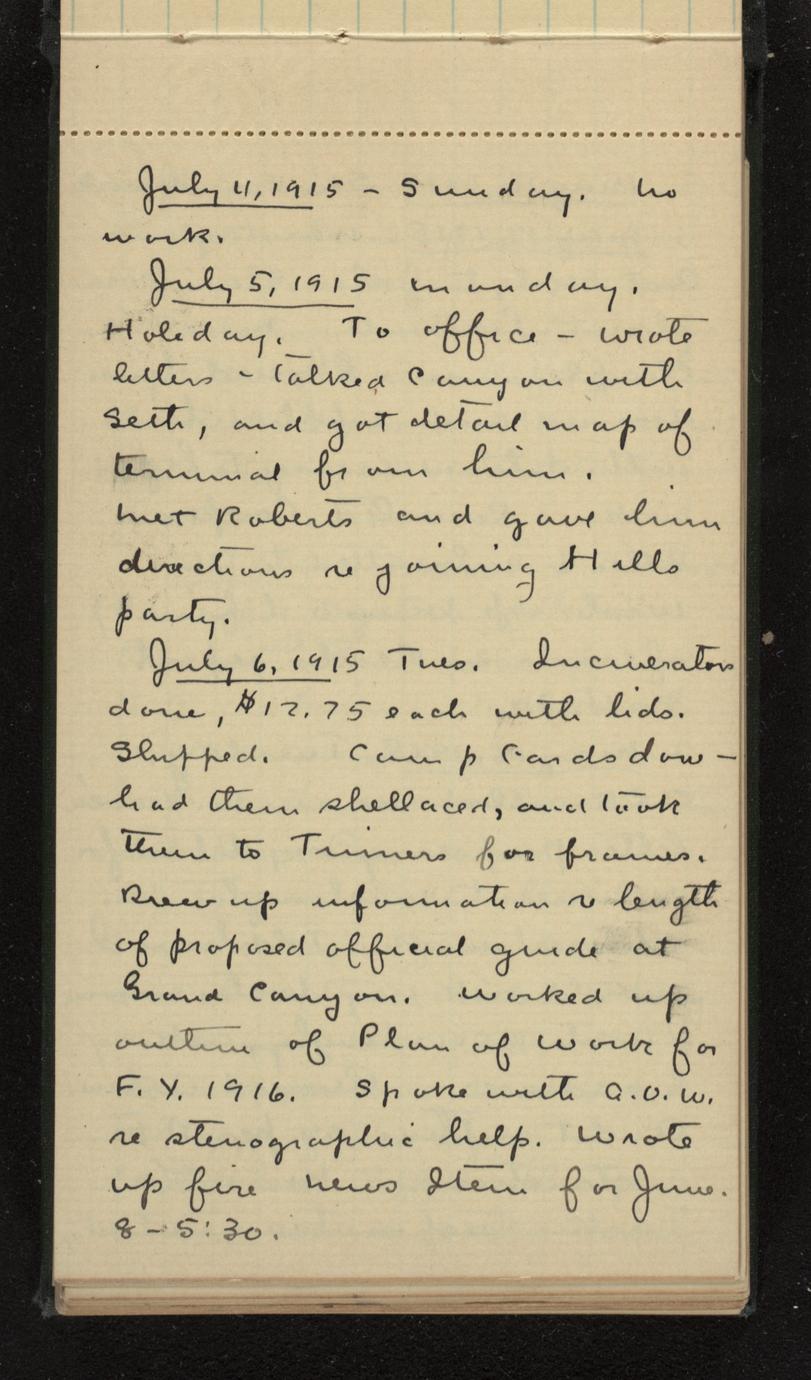 July 4, 1915 - Sunday. No
work.
July 5, 1915 Monday.
Holeday. To office - wrote
letters - Talked Canyon with
Seth, and got detail map of
terminal from him.
Met Roberts and gave him
directions re joining Hills
party.
July 6, 1915 Tues. Incinerators
done, $12.75 each with lids.
Shipped. Camp Cards done -
had them shellaced, and took
them to Timers for frames.
Drew up information re length
of proposed official guide at
Grand Canyon. Worked up
outline of Plan of Work for
F. Y. 1916. Spoke with A.O.W.
re stenographic help. Wrote
up fire news Item for June.
8 - 5:30.